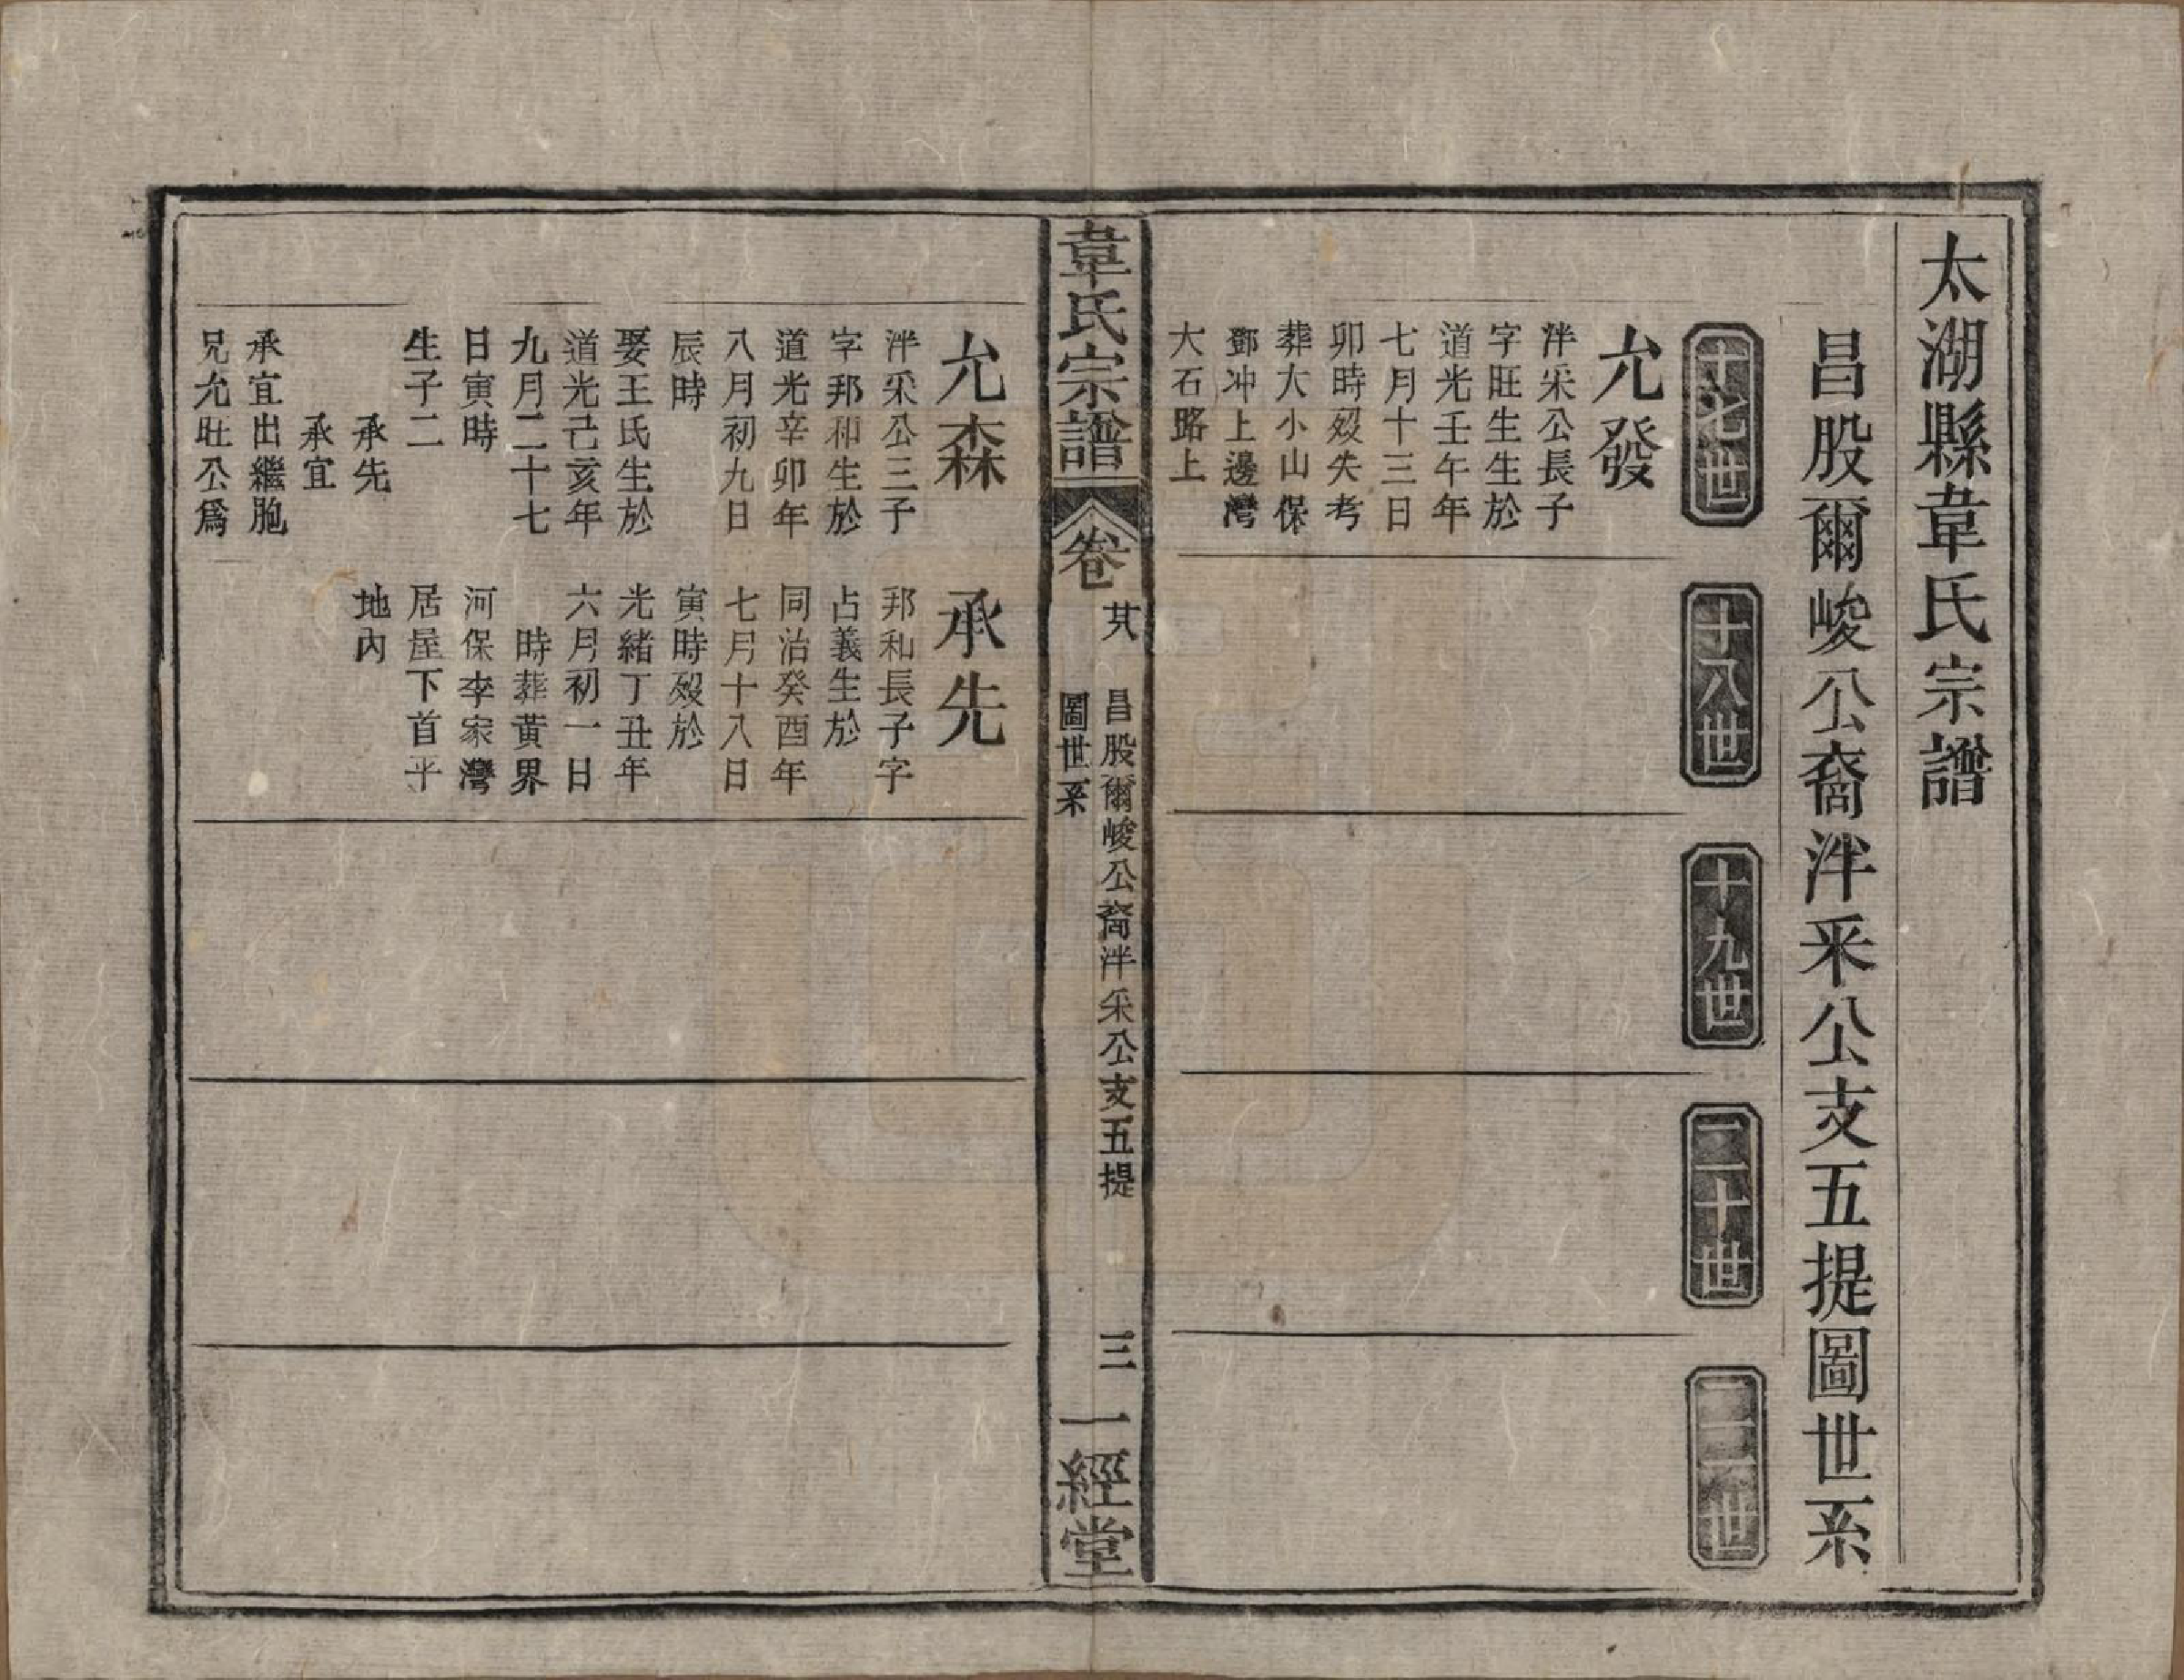 太湖縣韋氏宗譜
昌股爾峻公裔泮采公支五提圖世系
十七世
十八世
十九世
二十世
二一世
允發
泮采公長子
字旺生生於
道光壬午年
七月十三日
卯時歿失考
葬大小山保
鄧冲上邊灣
大石路上
韋氏宗譜
卷
昌股爾峻公裔泮采公支五提
圖世系
三
一經堂
允森
泮采公三子
字邦和生於
道光辛卯年
八月初九日
辰時
娶王氏生於
道光己亥年
九月二十七
日寅時
生子二
承先
承宜
承宜出繼胞
兄允旺公爲
承先
邦和長子字
占義生於
同治癸酉年
七月十八日
寅時歿於
光緒丁丑年
六月初一日
時葬黃界
河保李家灣
居屋下首平
地內